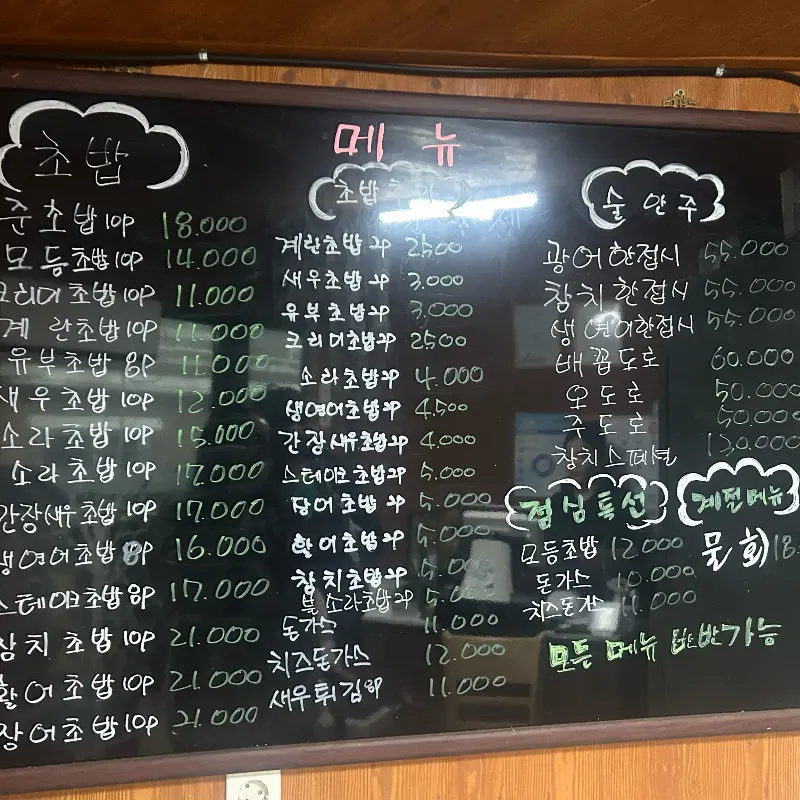 메뉴
초밥
준초밥 10P 18.000
모등초밥 10P 14.000
크리미초밥 10P 11.000
계란초밥 10P 11.000
유부초밥 8P 11.000
새우초밥 10P 12.000
소라초밥 10P 15.000
소라초밥 10P 17.000
간장새우초밥 10P 17.000
생연어초밥 8P 16.000
스테이크초밥 8P 17.000
참치초밥 10P 21.000
활어초밥 10P 21.000
장어초밥 10P 21.000
초밥
계란초밥 2P 2500
새우초밥 2P 3.000
유부초밥 2P 3.000
크리미초밥 2P 2500
소라초밥 2P 4.000
생연어초밥 2P 4.500
간장새우초밥 2P 4.000
스테이크초밥 2P 5.000
장어초밥 2P 5.000
활어초밥 2P 5.000
참치초밥 2P 5.000
불소라초밥 2P 5.000
돈가스 11.000
치즈돈가스 12.000
새우튀김 11.000
술안주
광어한접시 55.000
참치한접시 55.000
생연어한접시 55.000
배꼽도로 60.000
오도로 50.000
주도로 50.000
참치스페셜
점심특선
모등초밥 12.000
돈가스 10.000
치즈돈가스 11.000
계절메뉴
물회 18.
모든 메뉴 반반가능